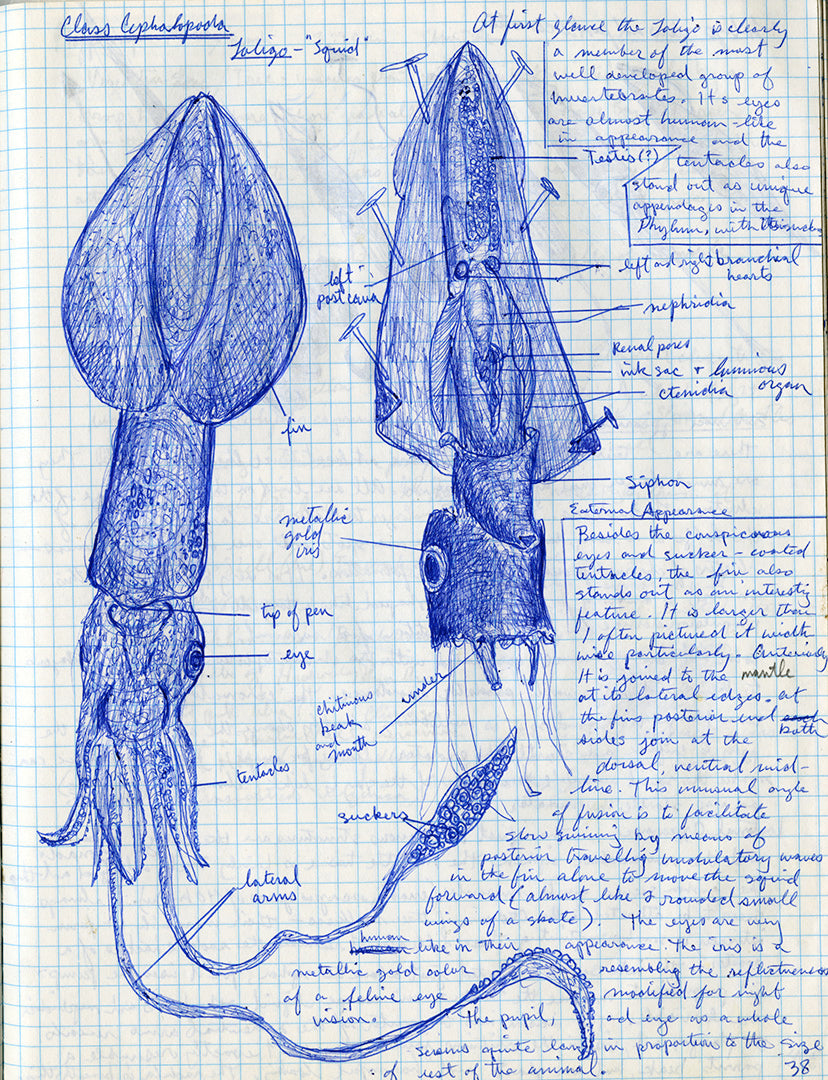 Class Cephalopoda
Loligo - "Squid"
At first glance the Loligo is clearly
a member of the most
well developed group of
invertebrates. Its eyes
are almost human-like
in appearance and the
tentacles also
stand out as unique
appendages in the
Phylum, with its suckers
Testis(?)
left and right branchial
hearts
left
post cava
nephridia
Renal pores
ink sac + luminous
organ
ctenidia
fin
Siphon
metallic
gold
iris
tip of pen
eye
chitinous
beak
and
mouth
under
tentacles
suckers
lateral
arms
External Appearance
Besides the conspicuous
eyes and sucker-coated
tentacles, the fin also
stands out as an interesting
feature. It is larger than
I often pictured it width
wise particularly. Anteriorly
It is joined to the mantle
at its lateral edges. at
the fins posterior end both
sides join at the
dorsal, ventral mid-
line. This unusual angle
of fusion is to facilitate
slow swiming by means of
posterior travelling undulatory waves
in the fin alone to move the squid
forward (almost like 2 rounded small
wings of a skate). The eyes are very
human like in their appearance. The iris is a
metallic gold color resembling the reflectiveness
of a feline eye modified for night
vision. The pupil, and eye as a whole
seems quite large in proportion to the size
of rest of the animal.
38